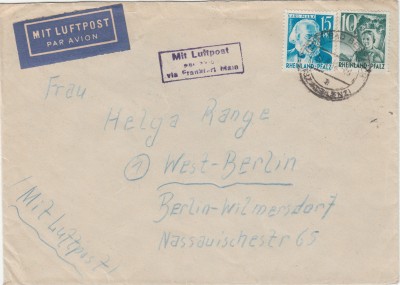 MIT LUFTPOST
PAR AVION
Mit Luftpost
via Frankfurt Main
KARL MARX 15
RHEINLAND-PFALZ
10
RHEINLAND-PFALZ
Frau
Helga Range
1 West-Berlin
Berlin-Wilmersdorf
Nassauischestr 65
(Mit Luftpost!